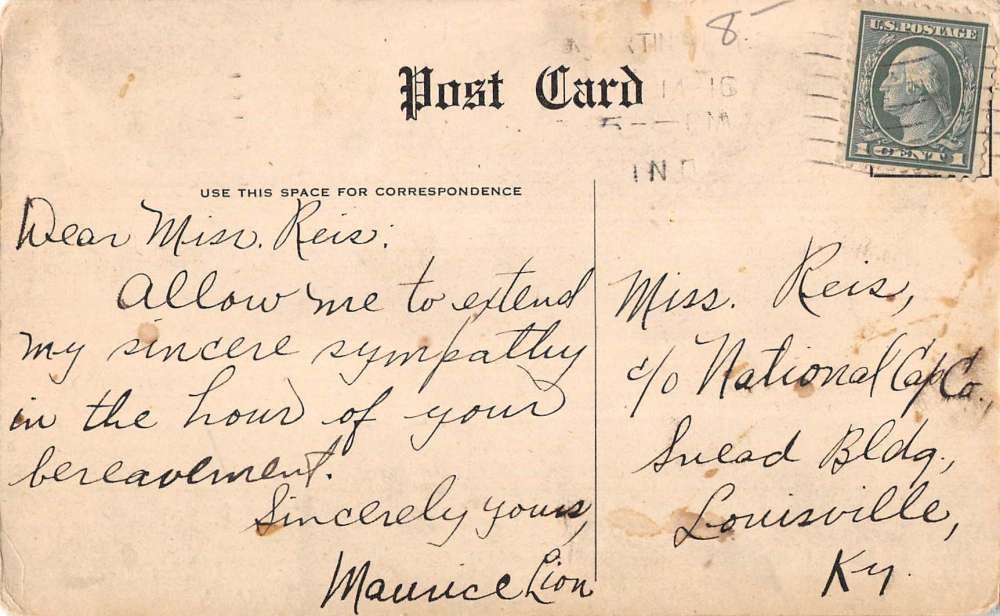 8-
U.S. POSTAGE
1 CENT 1
Post Card
16
PM
IND
USE THIS SPACE FOR CORRESPONDENCE
Dear Miss. Reis:
Allow me to extend
my sincere sympathy
in the hour of your
bereavement.
Sincerely yours,
Maurice Lion
Miss. Reis,
c/o National Cap Co.,
Snead Bldg.,
Louisville,
Ky.